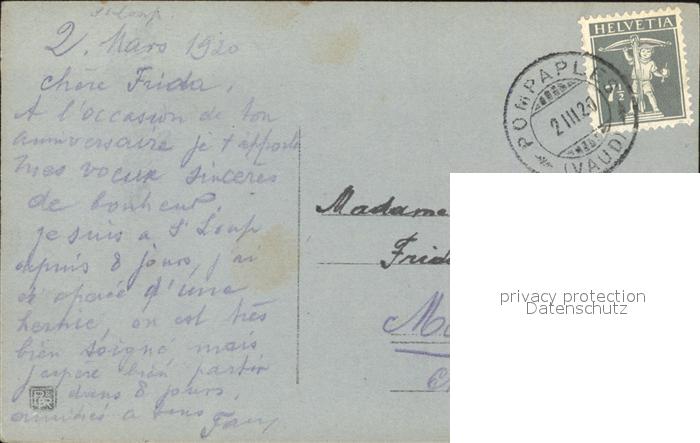 St Loup
2. Mars 1920
Chère Frida,
A l'occasion de ton
anniversaire je t'apporte
mes voeux sincères
de bonheur.
je suis a St Loup
depuis 8 jours, j'ai
été opéré d'une
hernie, on est très
bien soigné, mais
j'espère bien partir
dans 8 jours,
amitiés a tous
HELVETIA
7½
POMPAPLES
2 III 20
(VAUD)
Madame
Frid
privacy protection
Datenschutz